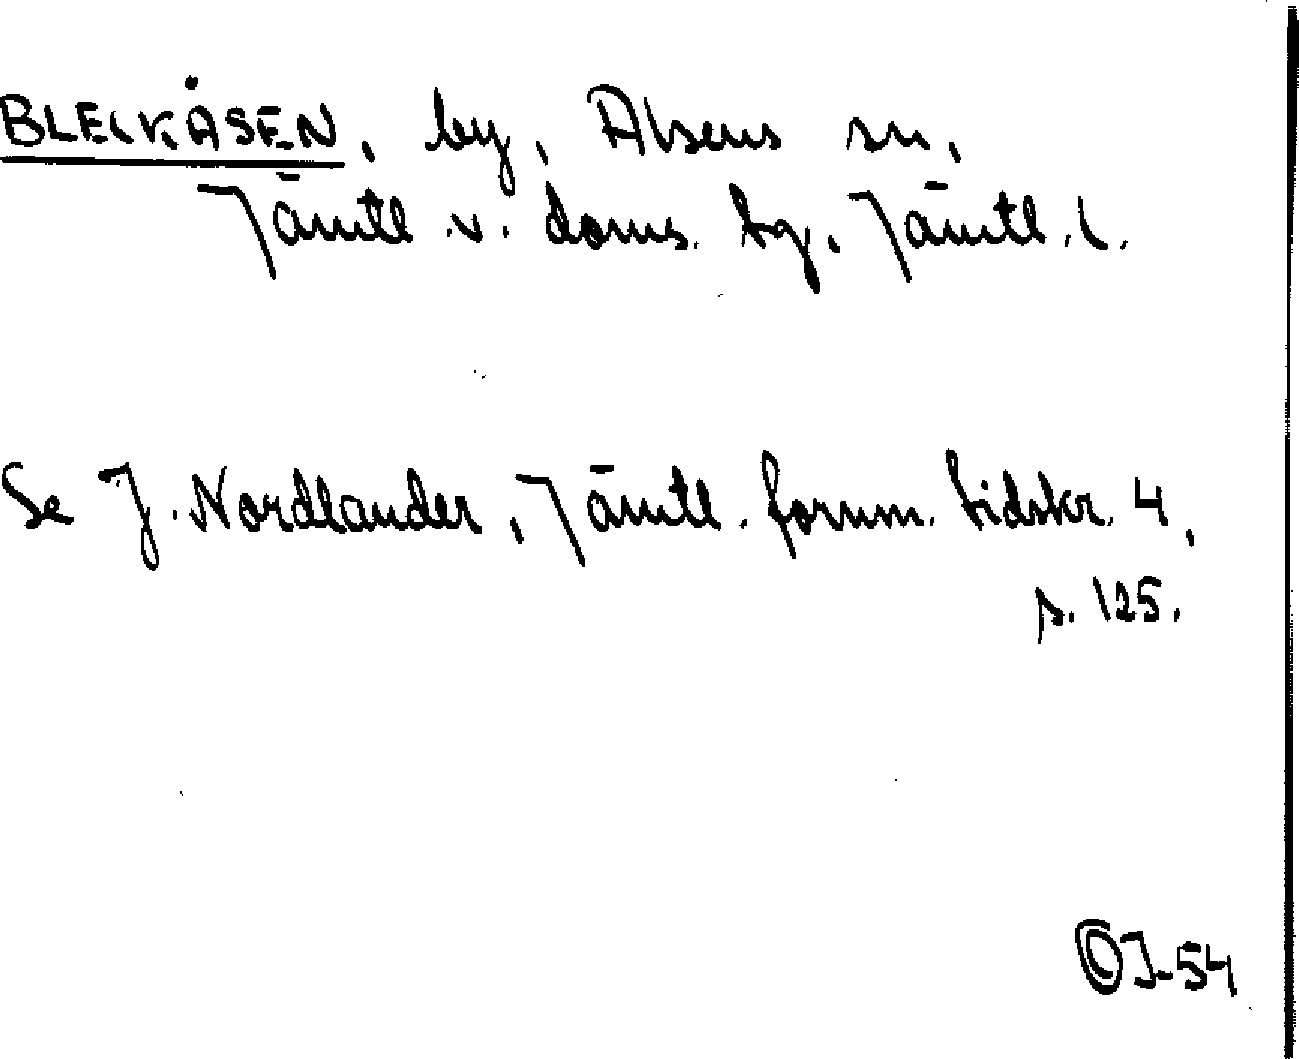 BLECKÅSEN, by, Alsens sn,
Jämtl. v. doms. tg. Jämtl. l.
Se J. Nordlander, Jämtl. fornm. tidskr. 4,
s. 125.
OJ-54